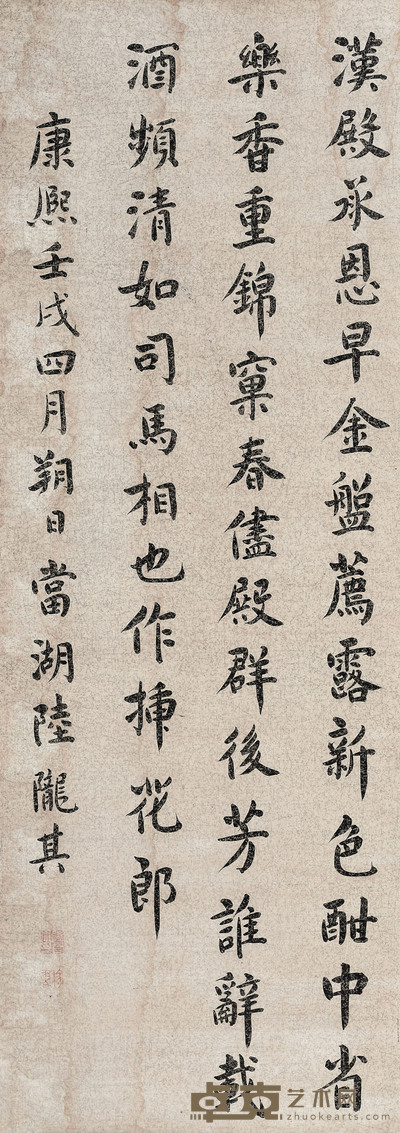 漢殿承恩早金盤薦露新色酣中省
樂香重錦窠春儘殿群後芳誰辭載
酒頻清如司馬相也作揷花郎
康熙壬戌四月朔日當湖陸隴其
卓克艺术网
www.zhuokearts.com